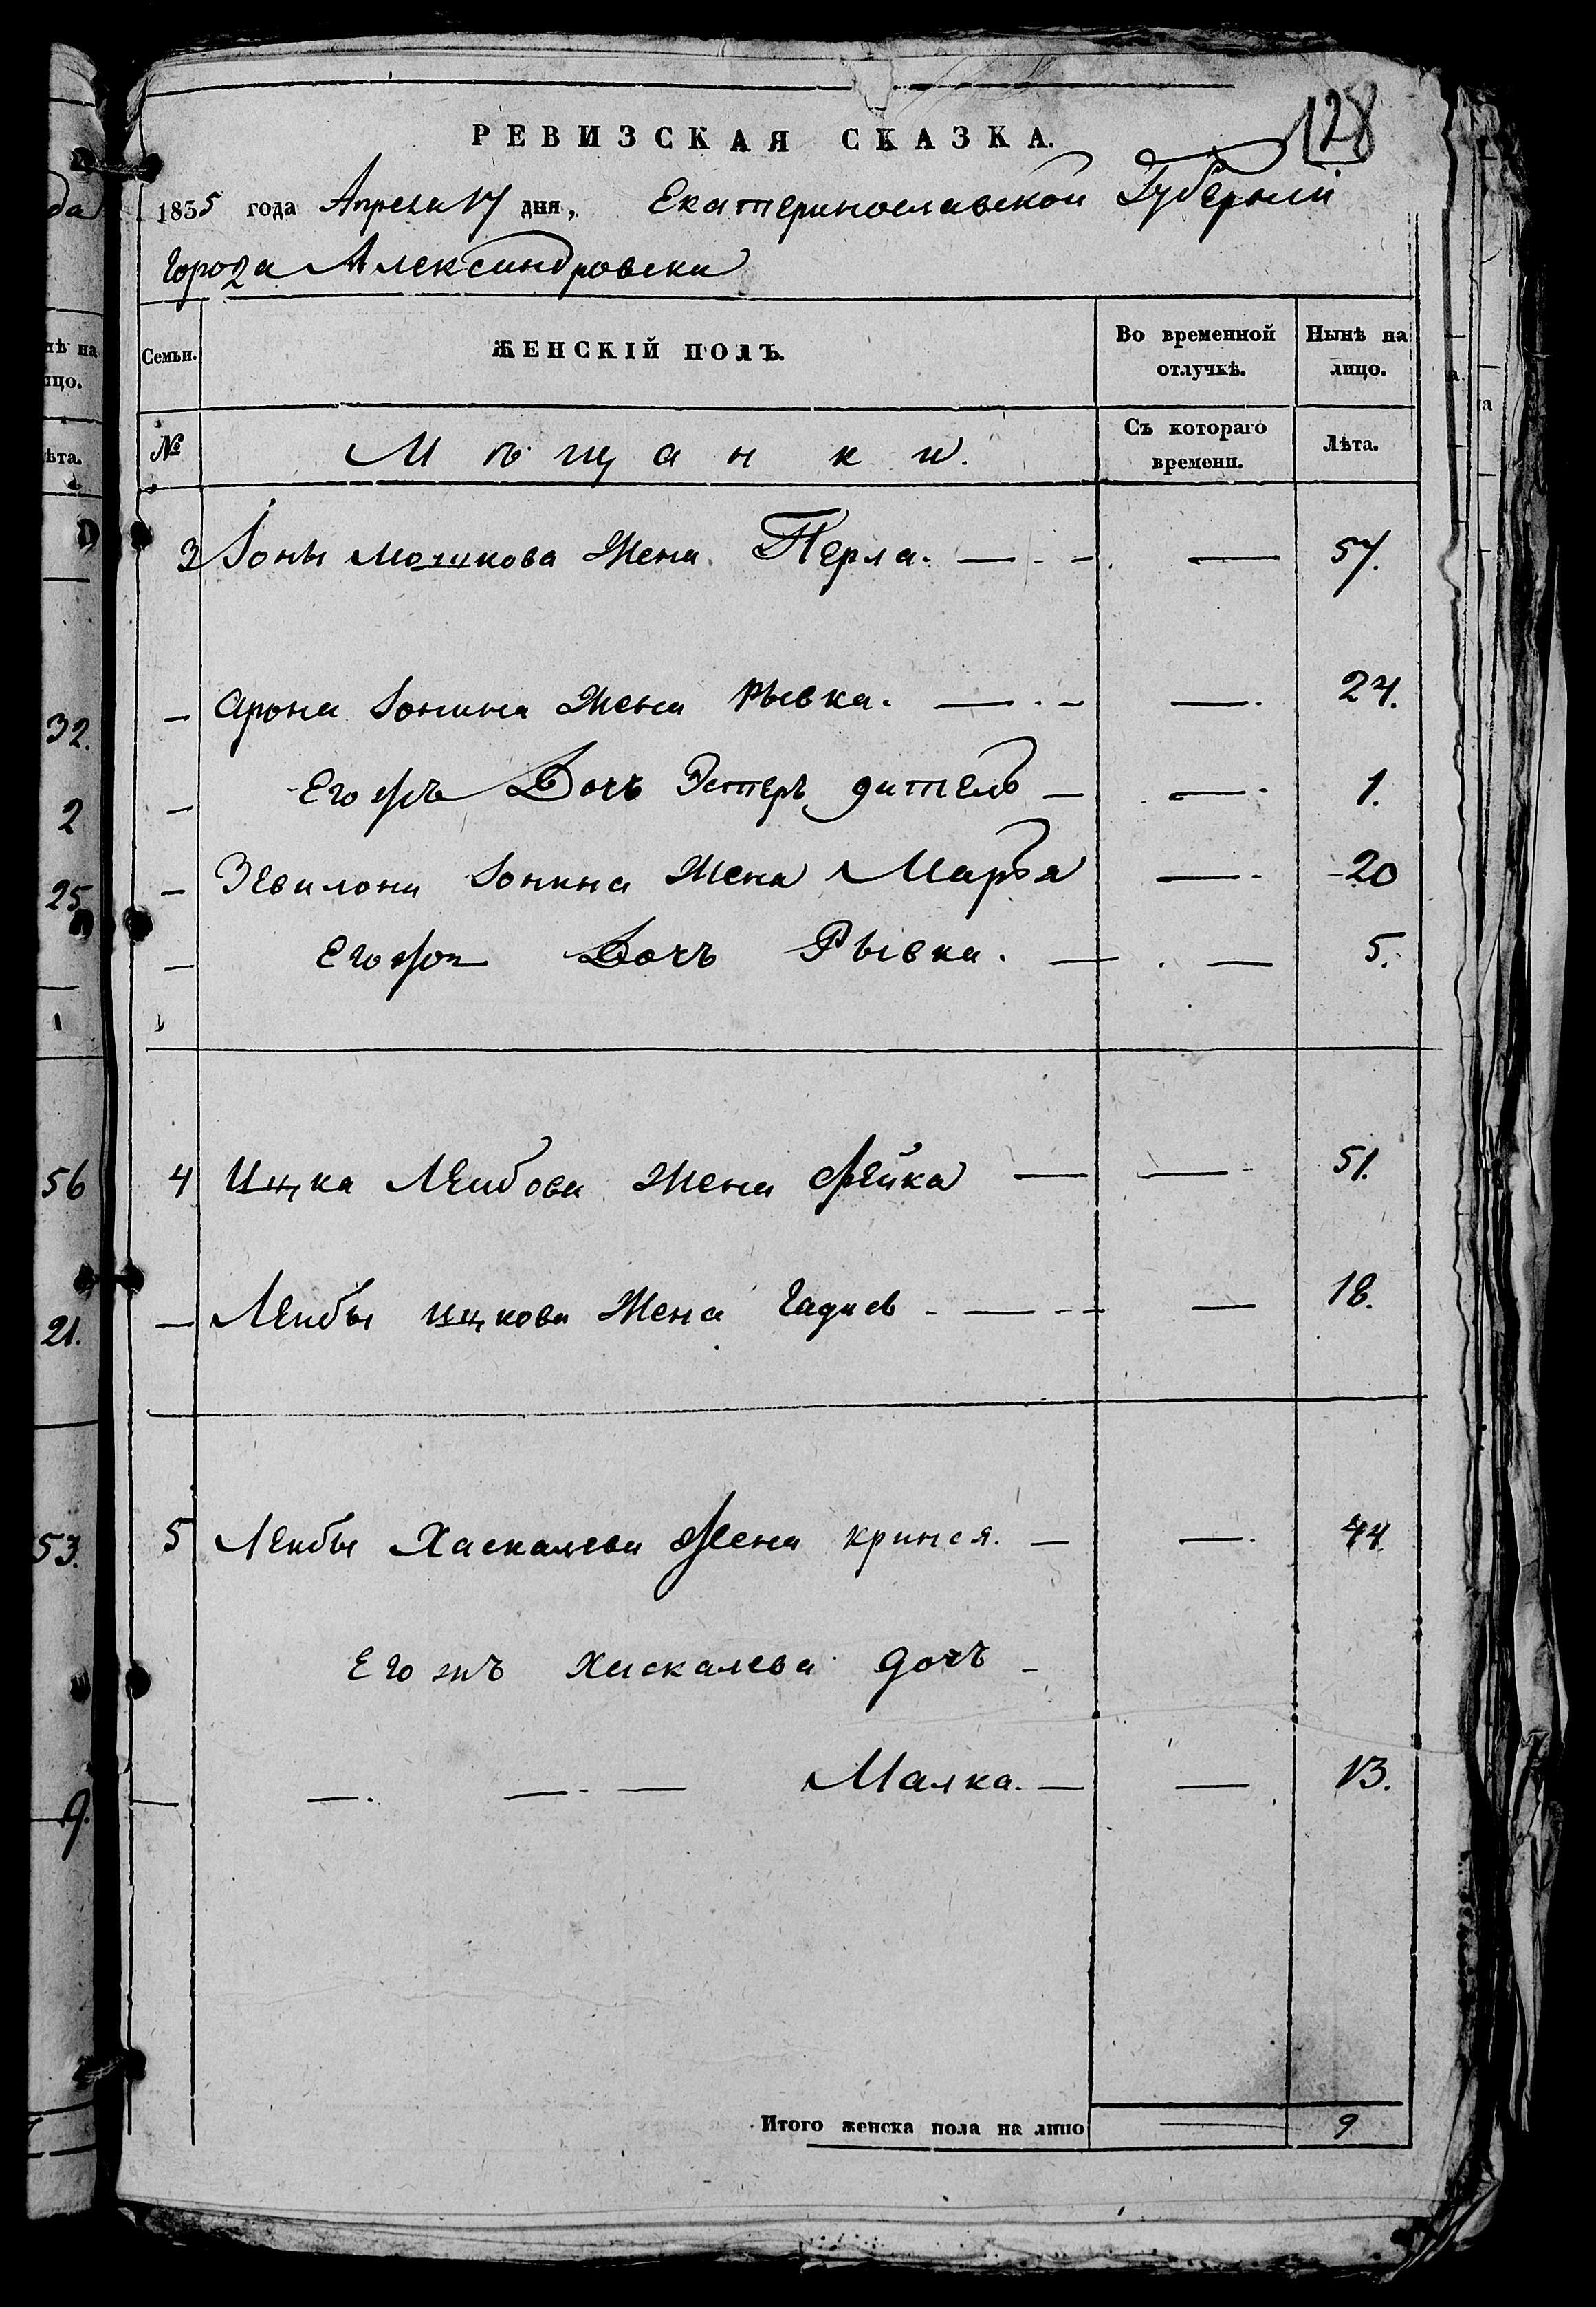 128
РЕВИЗСКАЯ СКАЗКА.
1835 года Апреля 17 дня, Екатеринославской Губерніи
Города Александровска
Семьи. ЖЕНСКІЙ ПОЛЪ. Во временной отлучкѣ. Нынѣ на лицо.
№ Мѣщанки. Съ котораго времени. Лѣта.
3 Іоны Мошкова Жена Перла. — — 57.
— Арона Іонина Жена Рывка. — — 24.
— Егожъ Дочь Эстеръ — — 1.
— Іонина Жена Марья — 20
— Егожъ Дочъ Рывка. — — 5.
4 Ицка Леибова Жена Фейка — — 51.
— Леибы Ицкова Жена — — 18.
5 Леибы Хаскалева Жена Кринся. — — 44
Егожъ Хаскалева дочъ —
— — — — Малка. — — 13.
Итого женска пола на лицо — 9
да
нѣ на
ицо.
ѣта.
32.
2
25
1
56
21.
53.
9.